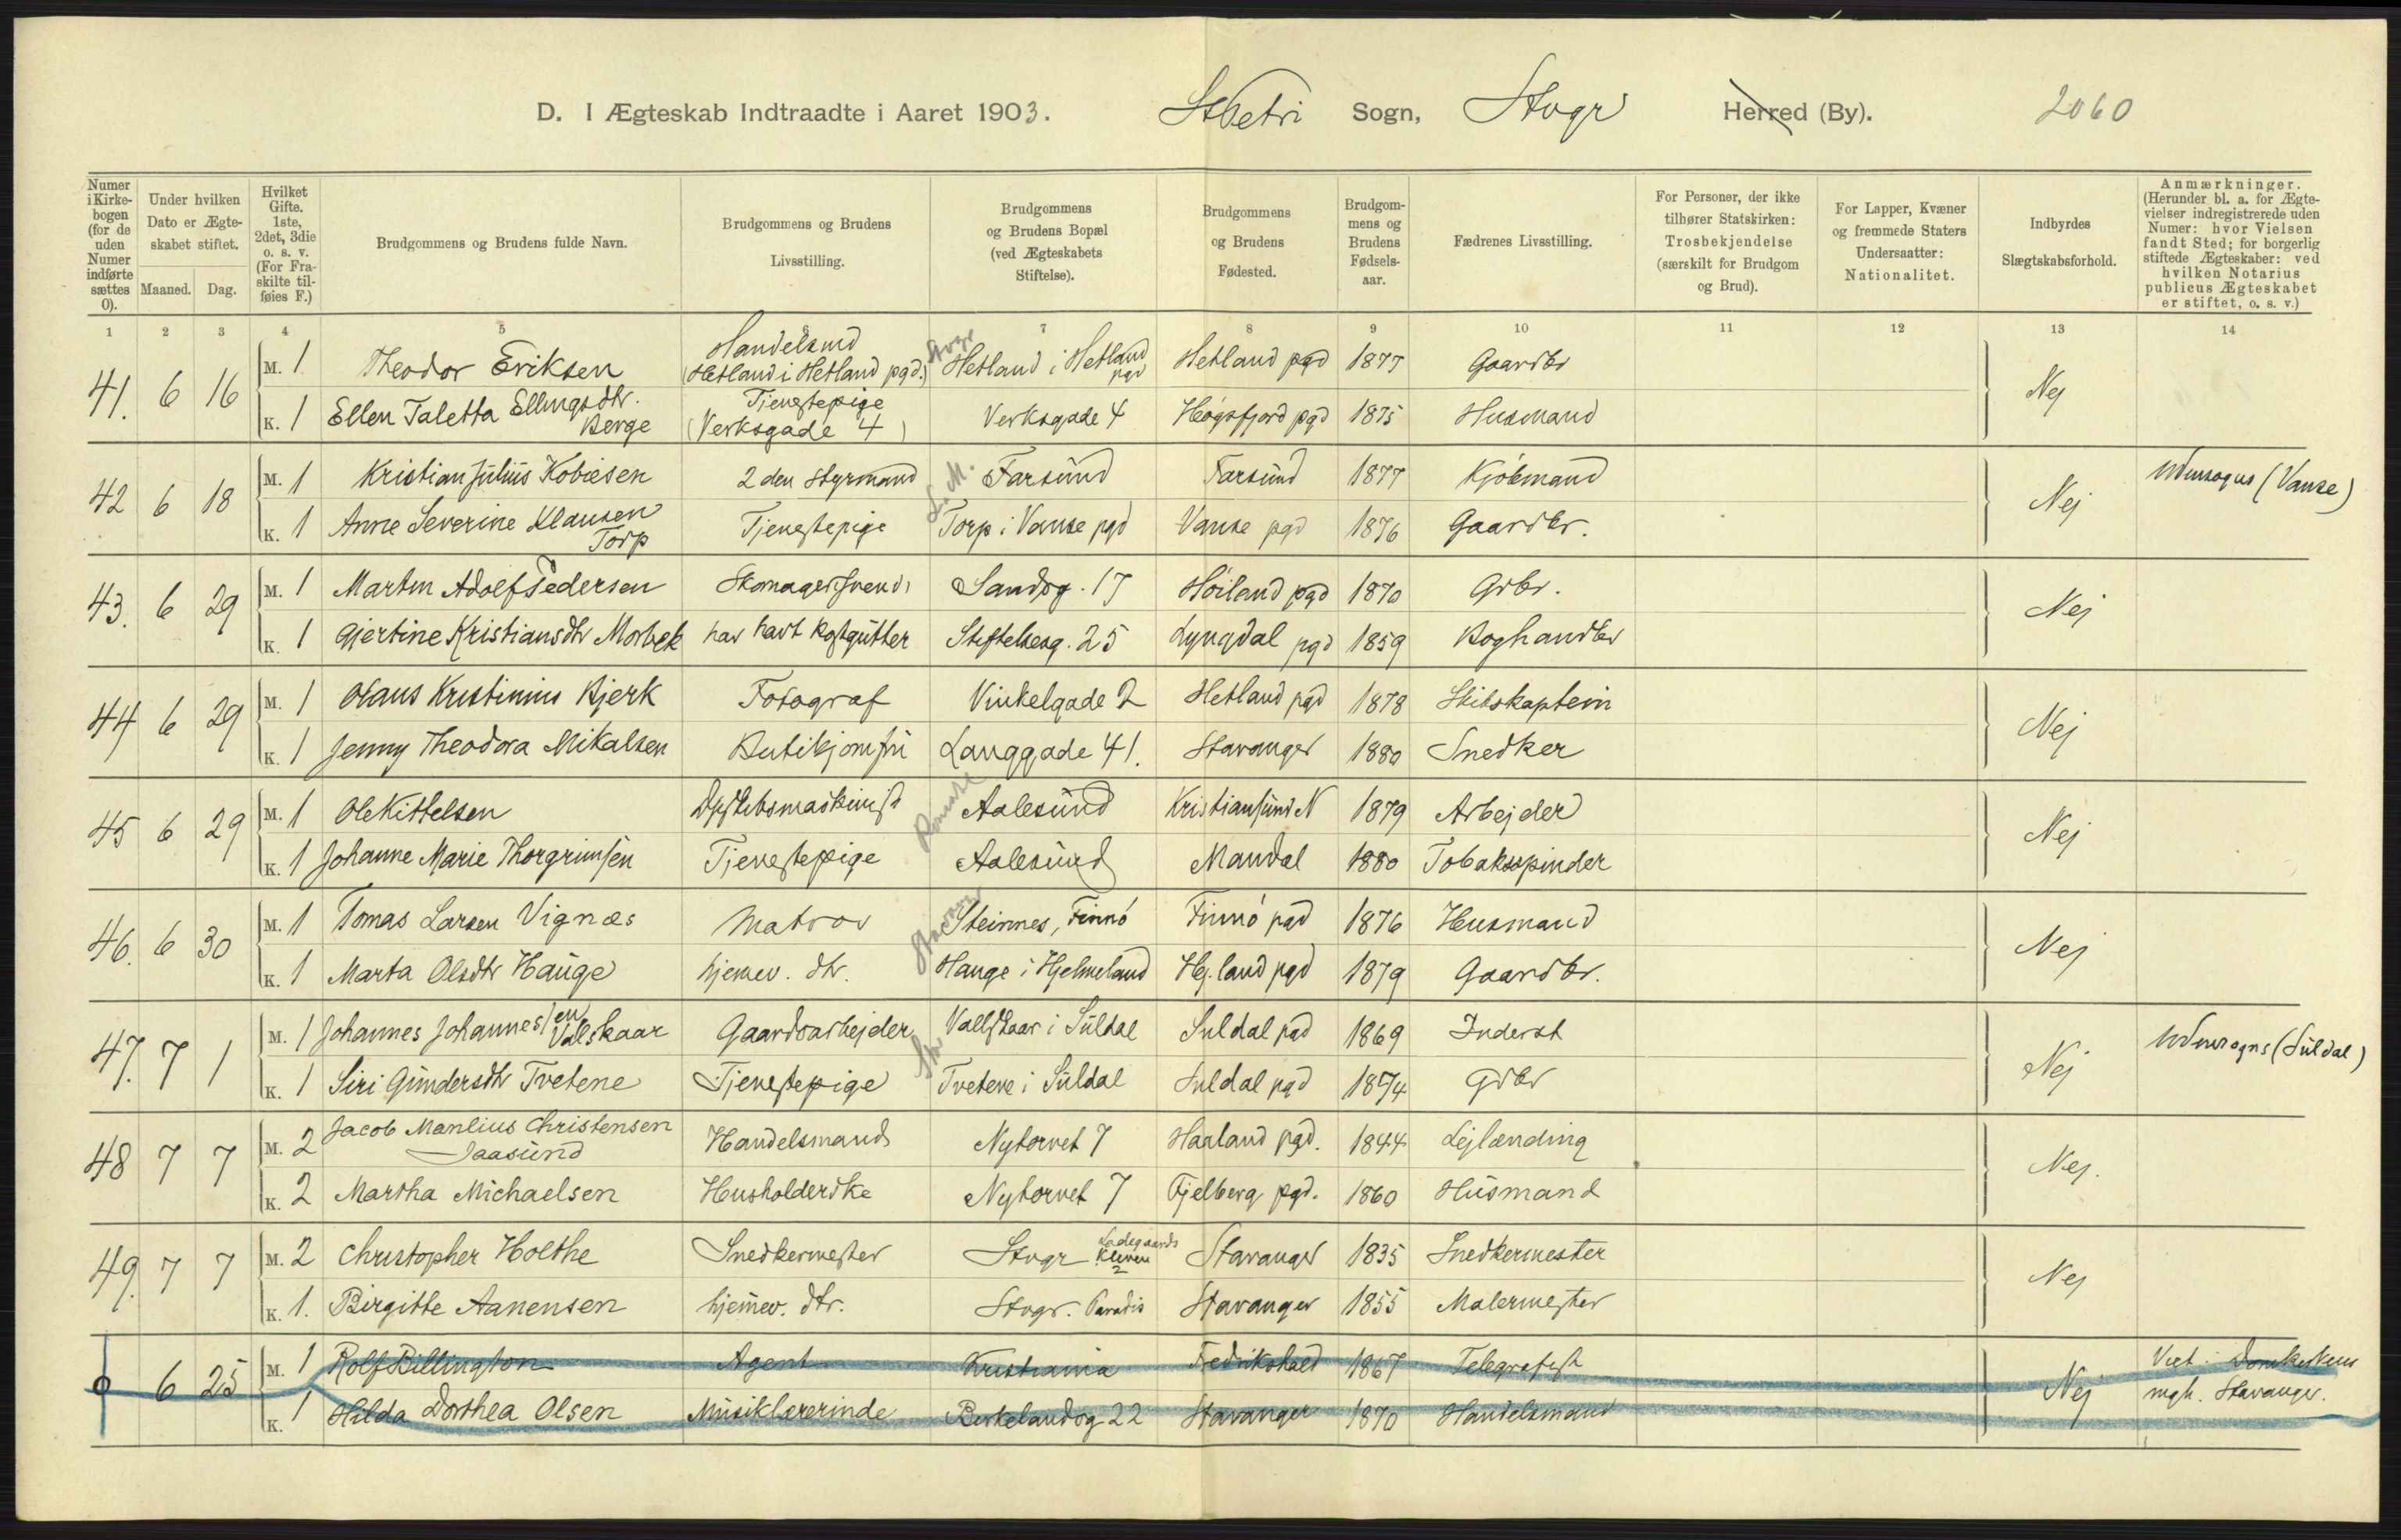 D. I Ægteskab Indtraadte i Aaret 1903. St Petri Sogn, Stvgr Herred (By). 2060
Numer i Kirke-bogen (for de uden Numer indførte sættes 0).
Under hvilken Dato er Ægte-skabet stiftet.
Maaned. Dag.
Hvilket Gifte. 1ste, 2det, 3die o. s. v. (For Fra-skilte til-føies F.)
Brudgommens og Brudens fulde Navn.
Brudgommens og Brudens Livsstilling.
Brudgommens og Brudens Bopæl (ved Ægteskabets Stiftelse).
Brudgommens og Brudens Fødested.
Brudgom-mens og Brudens Fødsels-aar.
Fædrenes Livsstilling.
For Personer, der ikke tilhører Statskirken: Trosbekjendelse (særskilt for Brudgom og Brud).
For Lapper, Kvæner og fremmede Staters Undersaatter: Nationalitet.
Indbyrdes Slægtskabsforhold.
Anmærkninger. (Herunder bl. a. for Ægte-vielser indregistrerede uden Numer: hvor Vielsen fandt Sted; for borgerlig stiftede Ægteskaber: ved hvilken Notarius publicus Ægteskabet er stiftet, o. s. v.)
1 2 3 4 5 7 8 9 10 11 12 13 14
41. 6 16 M. 1 Theodor Eriksen Handelsmd (Hetland i Hetland pgd.) Stvgr Hetland i Hetland pgd Hetland pgd 1877 Gaardbr Nej
K. 1 Ellen Taletta Ellingsdtr. Berge Tjenestepige (Verksgade 4) Verksgade 4 Høgsfjord pgd 1875 Husmand
42 6 18 M. 1 Kristian Julius Tobiesen 2den Styrmand L. M. Farsund Farsund 1877 Kjøbmand Nej Udensogns (Vanse)
K. 1 Anne Severine Klausen Torp Tjenestepige Torp i Vanse pgd Vanse pgd 1876 Gaardbr.
43. 6 29 M. 1 Martin Adolf Pedersen Skomagersvend Sandsg. 17 Høiland pgd 1870 Grbr. Nej
K. 1 Gjertine Kristiansdtr Morbek har havt kostgutter Stiftelsesg. 25 Lyngdal pgd 1859 Boghandler
44 6 29 M. 1 Olaus Kristinius Bjerk Fotograf Vinkelgade 2 Hetland pgd 1878 Skibskaptein Nej
K. 1 Jenny Theodora Mikalsen Butikjomfru Langgade 41. Stavanger 1880 Snedker
45 6 29 M. 1 Ole Kittelsen Dpskibsmaskinist Romsd Aalesund Kristiansund N 1879 Arbejder Nej
K. 1 Johanne Marie Thorgrimsen Tjenestepige Aalesund Mandal 1880 Tobakspinder
46. 6 30 M. 1 Tomas Larsen Vignæs Matros Stavanger Steinnes, Finnø Finnø pgd 1876 Husmand Nej
K. 1 Marta Olsdtr Hauge hjemev. dtr. Hauge i Hjelmeland Hj.land pgd 1879 Gaardbr.
47. 7 1 M. 1 Johannes Johannessen Valskaar Gaardsarbejder Valskaar i Suldal Suldal pgd 1869 Inderst Nej Udensogns (Suldal)
K. 1 Siri Gundersdtr Tvetene Tjenestepige Tvetene i Suldal Suldal pgd 1874 Grbr
48 7 7 M. 2 Jacob Manlius Christensen Jaasund Handelsmand Nytorvet 7 Haaland pgd. 1844 Lejlænding Nej.
K. 2 Martha Michaelsen Husholderske Nytorvet 7 Fjelberg pgd. 1860 Husmand
49. 7 7 M. 2 Christopher Holthe Snedkermester Stvgr Ladegaards Kleven 2 Stavanger 1835 Snedkermester Nej
K. 1. Birgitte Aanensen hjemev. dtr. Stvgr. Paradis Stavanger 1855 Malermester
0 6 25 M. 1 Rolf Billington Agent Kristiania Fredrikshald 1867 Telegrafist Nej Viet i Domkirkens mgh. Stavanger.
K. 1 Hilda Dorthea Olsen Musiklærerinde Birkelandsg 22 Stavanger 1870 Handelsmand